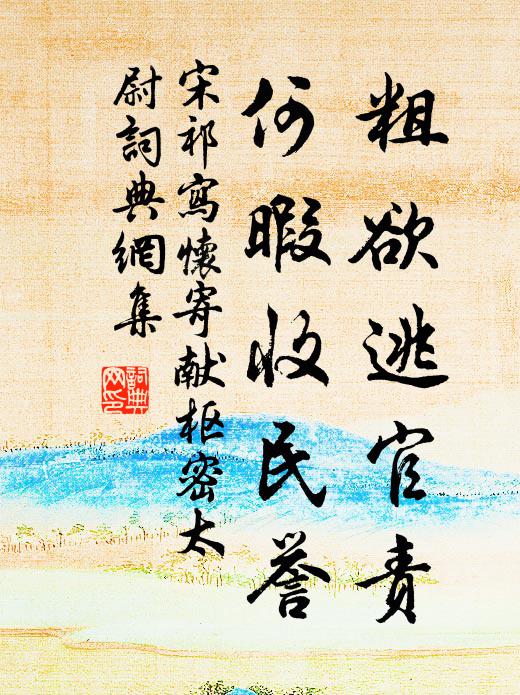 粗欲逃官责
何暇收民誉
宋祁寫懷寄献枢密太
尉詞典網集
詞典
网印